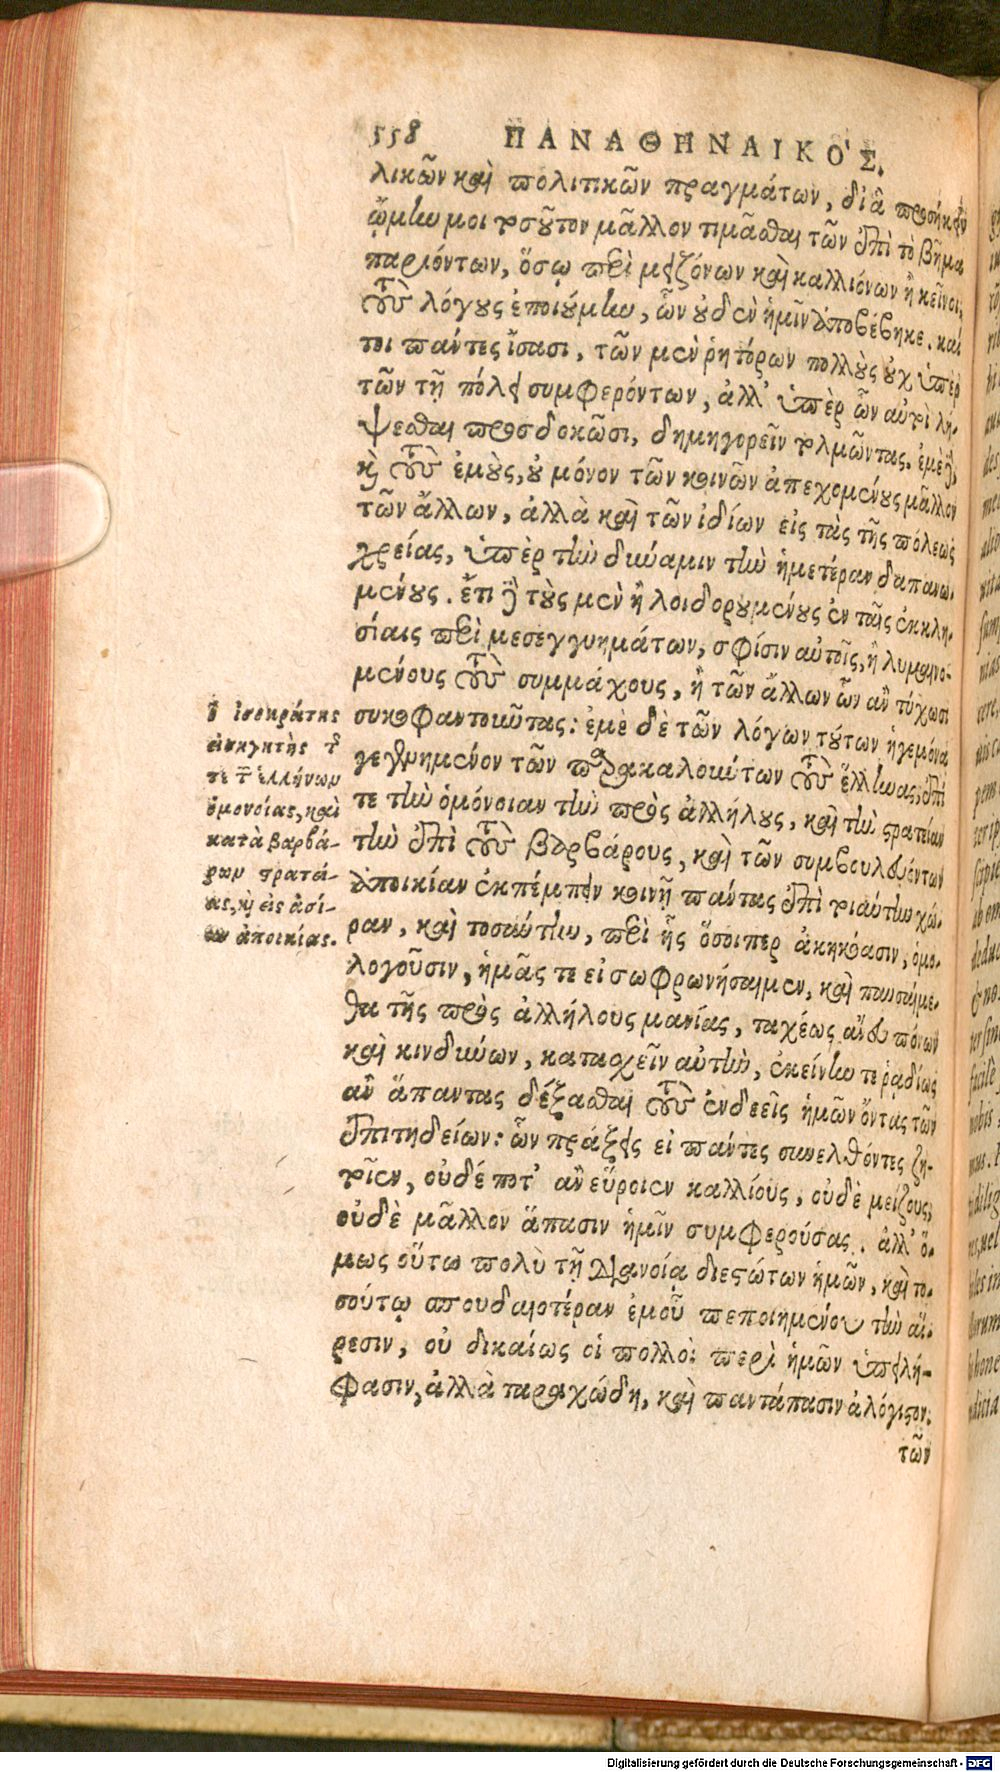 558 ΠΑΝΑΘΗΝΑΙΚΟ'Σ.
λικῶν καὶ πολιτικῶν πραγμάτων, δι' ἃ προσῆκεν
ᾤμην μοι τοσοῦτον μᾶλλον τιμᾶσθαι τῶν ἐπὶ τὸ βῆμα
παριόντων, ὅσῳ περὶ μειζόνων καὶ καλλιόνων ἢ κεῖνοι,
τοὺς λόγους ἐποιούμην, ὧν οὐδὲν ἡμῖν ἀποβέβηκε. καί
τοι πάντες ἴσασι, τῶν μὲν ῥητόρων πολλοὺς οὐχ ὑπὲρ
τῶν τῇ πόλει συμφερόντων, ἀλλ' ὑπὲρ ὧν αὐτοὶ λή-
ψεσθαι προσδοκῶσι, δημηγορεῖν τολμῶντας. ἐμὲ δὲ,
καὶ τοὺς ἐμοὺς, οὐ μόνον τῶν κοινῶν ἀπεχομένους μᾶλλον
τῶν ἄλλων, ἀλλὰ καὶ τῶν ἰδίων εἰς τὰς τῆς πόλεως
χρείας, ὑπὲρ τὴν δύναμιν τὴν ἡμετέραν δαπανω-
μένους. ἔτι δὲ τοὺς μὲν ἢ λοιδορουμένους ἐν ταῖς ἐκκλη-
σίαις περὶ μεσεγγυημάτων, σφίσιν αὐτοῖς, ἢ λυμαινο-
μένους τοὺς συμμάχους, ἢ τῶν ἄλλων ὧν ἂν τύχωσι
συκοφαντοῦντας: ἐμὲ δὲ τῶν λόγων τούτων ἡγεμόνα
γεγενημένον τῶν παρακαλούντων τοὺς ἕλληνας, ἐπί
τε τὴν ὁμόνοιαν τὴν πρὸς ἀλλήλους, καὶ τὴν στρατείαν
τὴν ἐπὶ τοὺς βαρβάρους, καὶ τῶν συμβουλευόντων
ἀποικίαν ἐκπέμπειν κοινῇ πάντας ἐπὶ τοιαύτην χώ-
ραν, καὶ τοσαύτην, περὶ ἧς ὅσοιπερ ἀκηκόασιν, ὁμο-
λογοῦσιν, ἡμᾶς τε εἰ σωφρονήσαιμεν, καὶ παυσαίμε-
θα τῆς πρὸς ἀλλήλους μανίας, ταχέως ἄνευ πόνων
καὶ κινδύνων, κατασχεῖν αὐτὴν, ἐκείνην τε ῥᾳδίως
ἂν ἅπαντας δέξασθαι τοὺς ἐνδεεῖς ἡμῶν ὄντας τῶν
ἐπιτηδείων: ὧν πράξεις εἰ πάντες συνελθόντες ζη-
τοῖεν, οὐδέ ποτ' ἂν εὕροιεν καλλίους, οὐδὲ μείζους,
οὐδὲ μᾶλλον ἅπασιν ἡμῖν συμφερούσας. ἀλλ' ὅ-
μως οὕτω πολὺ τῇ διανοίᾳ διεστώτων ἡμῶν, καὶ το-
σούτῳ σπουδαιοτέραν ἐμοῦ πεποιημένου τὴν αἵ-
ρεσιν, οὐ δικαίως οἱ πολλοὶ περὶ ἡμῶν ὑπειλή-
φασιν, ἀλλὰ ταραχώδη, καὶ παντάπασιν ἀλόγιστον.
τῶν
ὁ ἰσοκράτης
εἰσηγητὴς τῆς
τε τῶν ἑλλήνων
ὁμονοίας, καὶ
κατὰ βαρβά-
ρων στρατεί-
ας, καὶ εἰς ἀσί-
αν ἀποικίας.
Digitalisierung gefördert durch die Deutsche Forschungsgemeinschaft - DFG